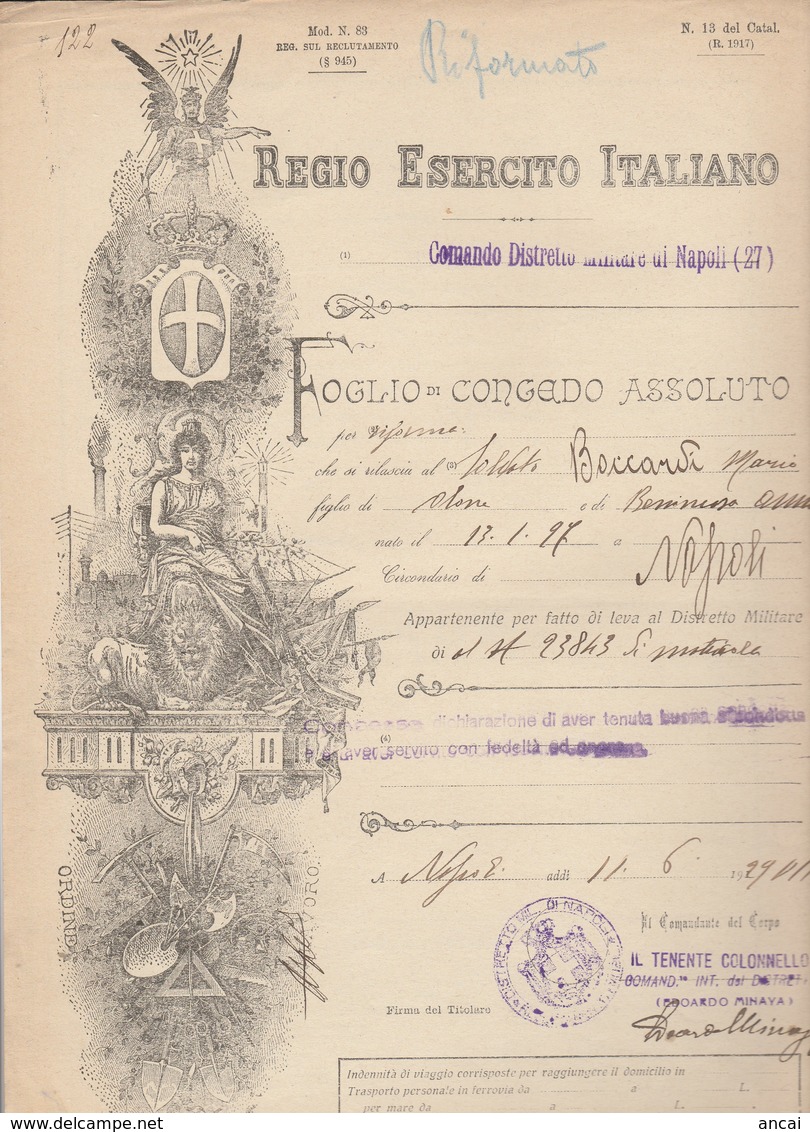 122
Mod. N. 83
REG. SUL RECLUTAMENTO
(§ 945)
Riformato
N. 13 del Catal.
(R. 1917)
REGIO ESERCITO ITALIANO
(1) Comando Distretto Militare di Napoli (27)
FOGLIO DI CONGEDO ASSOLUTO
per riforma
che si rilascia al (3) Soldato Boccardi Mario
figlio di e di
nato il 13.1.97 a
Circondario di Napoli
Appartenente per fatto di leva al Distretto Militare
di al N 23843 di matricola
dichiarazione di aver tenuta buona condotta
(4) e di aver servito con fedeltà ed onore.
A Napoli addì 11. 6. 1929 VII
ORDINE
LAVORO.
DISTRETTO MIL. DI NAPOLI
Il Comandante del Corpo
IL TENENTE COLONNELLO
COMAND.te INT. del DISTRET
(EDOARDO MINAYA)
Firma del Titolare
Edoardo Minaya
Indennità di viaggio corrisposte per raggiungere il domicilio in
Trasporto personale in ferrovia da a L.
per mare da a L.
delcampe.net
ancai